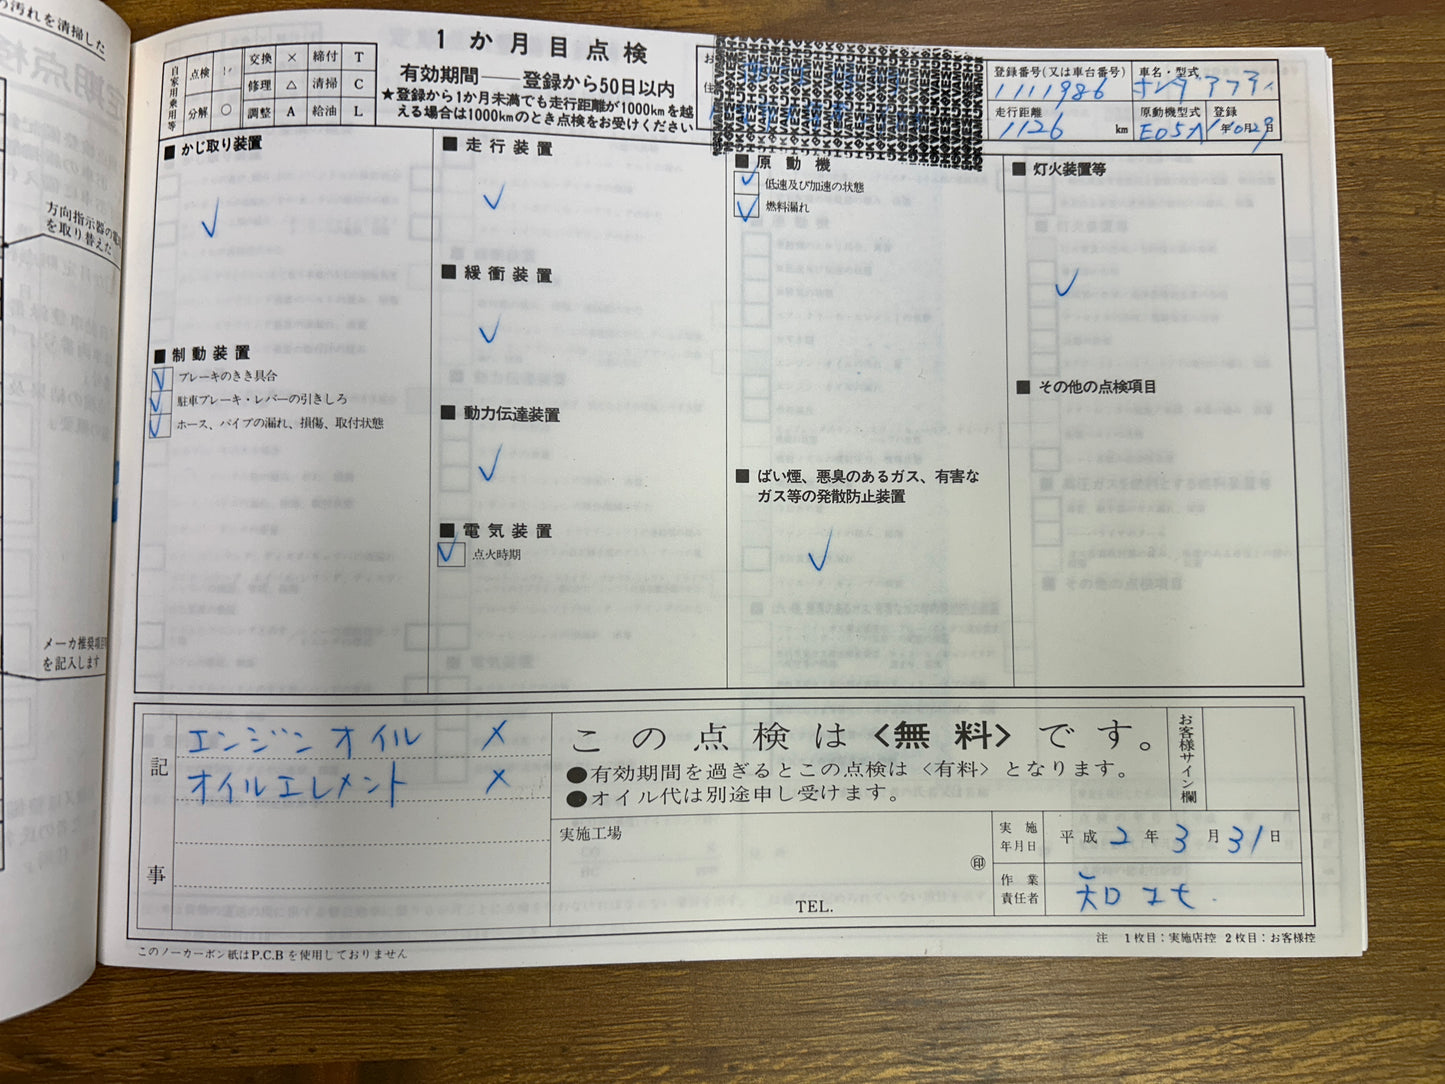 の汚れを清掃した
方向指示器の電
を取り替えた
メーカ推奨項目
を記入します
自家用乗用等
点検 レ 交換 × 締付 T
修理 △ 清掃 C
分解 ○ 調整 A 給油 L
1か月目点検
有効期間――登録から50日以内
★登録から1か月未満でも走行距離が1000kmを越
える場合は1000kmのとき点検をお受けください
お
住
登録番号(又は車台番号) 車名・型式
1111986
走行距離 原動機型式 登録
1126 km E05A 年10月29日
■ かじ取り装置
■ 制動装置
ブレーキのきき具合
駐車ブレーキ・レバーの引きしろ
ホース、パイプの漏れ、損傷、取付状態
■ 走行装置
■ 緩衝装置
■ 動力伝達装置
■ 電気装置
点火時期
■ 原動機
低速及び加速の状態
燃料漏れ
■ ばい煙、悪臭のあるガス、有害な
ガス等の発散防止装置
■ 灯火装置等
■ その他の点検項目
記事
エンジンオイル ×
オイルエレメント ×
この点検は<無料>です。
●有効期間を過ぎるとこの点検は〈有料〉となります。
●オイル代は別途申し受けます。
お客様サイン欄
実施工場
㊞
TEL.
実施年月日 平成2年3月31日
作業責任者
このノーカーボン紙はP.C.Bを使用しておりません
注 1枚目:実施店控 2枚目:お客様控